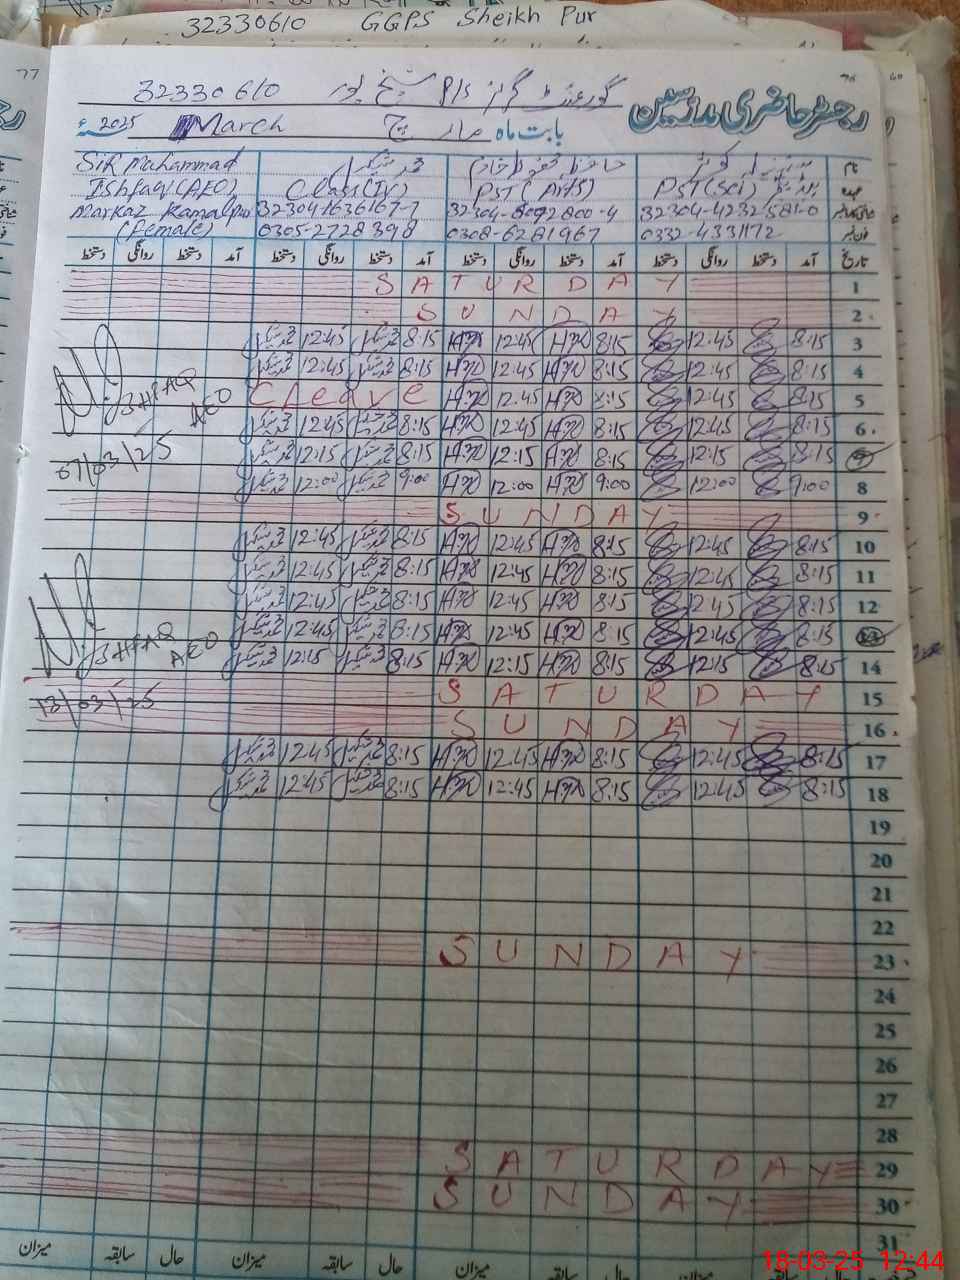 32330610 GGPS Sheikh Pur
رجسٹر حاضری مدرسین گورنمنٹ گرلز P/S شیخ پور 32330610
بابت ماہ مارچ March 2025ء
نام Sir Muhammad
عہدہ PST(Sci) PST(Arts) Class(IV) Ishfaq(AEO)
شناختی کارڈ نمبر 32304-4232581-0 32304-8092800-4 32304-1636167-7 Markaz Kamalpur
فون نمبر 0332-4331172 0308-6281967 0305-2728398 (female)
تاریخ آمد دستخط روانگی دستخط آمد دستخط روانگی دستخط آمد دستخط روانگی دستخط آمد دستخط روانگی دستخط
1 SATURDAY
2 SUNDAY
3 8:15 12:45 8:15 12:45 8:15 12:45
4 8:15 12:45 8:15 12:45 8:15 12:45
5 8:15 12:45 8:15 12:45 C leave
6 8:15 12:45 8:15 12:45 8:15 12:45
7 8:15 12:15 8:15 12:15 8:15 12:15
8 9:00 12:00 9:00 12:00 9:00 12:00
ISHFAQ
AEO
07/03/25
9 SUNDAY
10 8:15 12:45 8:15 12:45 8:15 12:45
11 8:15 12:45 8:15 12:45 8:15 12:45
12 8:15 12:45 8:15 12:45 8:15 12:45
13 8:15 12:45 8:15 12:45 8:15 12:45
14 8:15 12:15 8:15 12:15 8:15 12:15
ISHFAQ
AEO
13/03/25
15 SATURDAY
16 SUNDAY
17 8:15 12:45 8:15 12:45 8:15 12:45
18 8:15 12:45 8:15 12:45 8:15 12:45
19
20
21
22
23 SUNDAY
24
25
26
27
28
29 SATURDAY
30 SUNDAY
31
حال سابقہ میزان حال سابقہ میزان حال سابقہ میزان
18-03-25 12:44